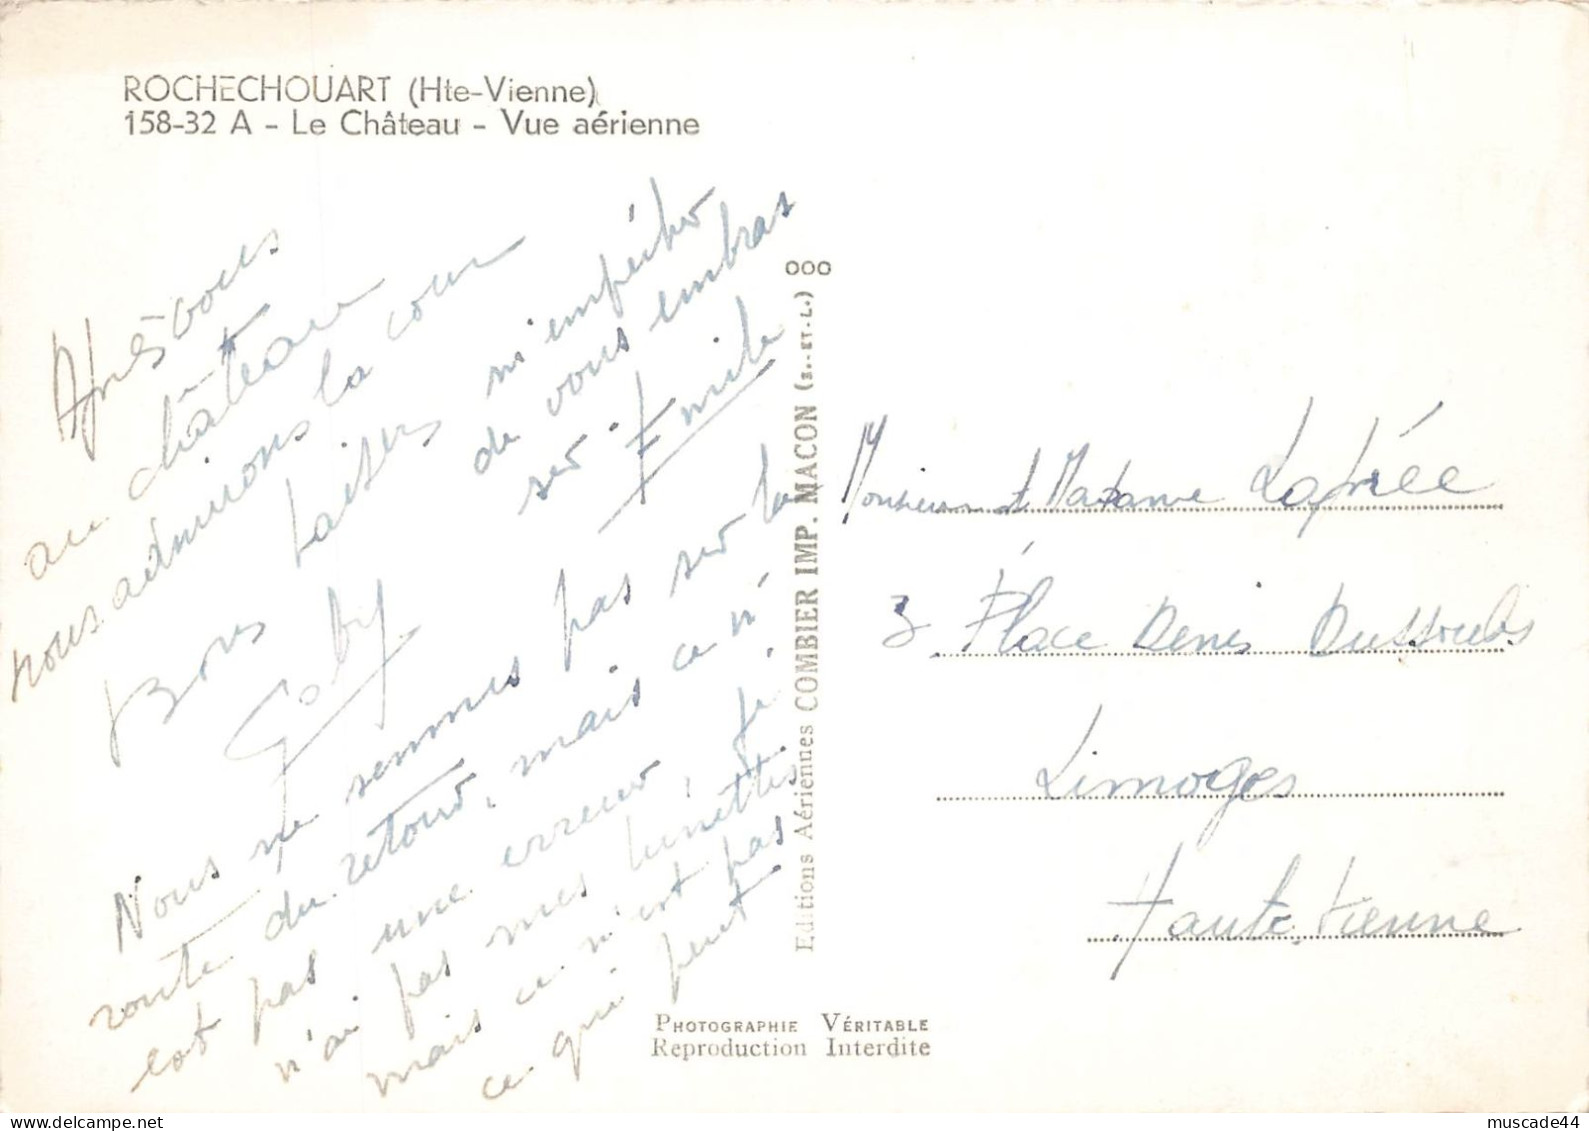 ROCHECHOUART (Hte-Vienne)
158-32 A - Le Château - Vue aérienne
Après vous
au château
nous admirons la cour
Bons baisers
Gaby
Nous ne sommes pas sur la
route du retour, mais ce n'
est pas une erreur, je
n'ai pas mes lunettes
mais ce n'est pas
ce qui peut
m'empêcher
de vous embras
ser. Emile
Editions Aériennes COMBIER IMP. MACON (S.-ET-L.) 000
Monsieur et Madame
3 Place Denis Dussoubs
Limoges
Haute-Vienne
PHOTOGRAPHIE VÉRITABLE
Reproduction Interdite
delcampe.net
muscade44